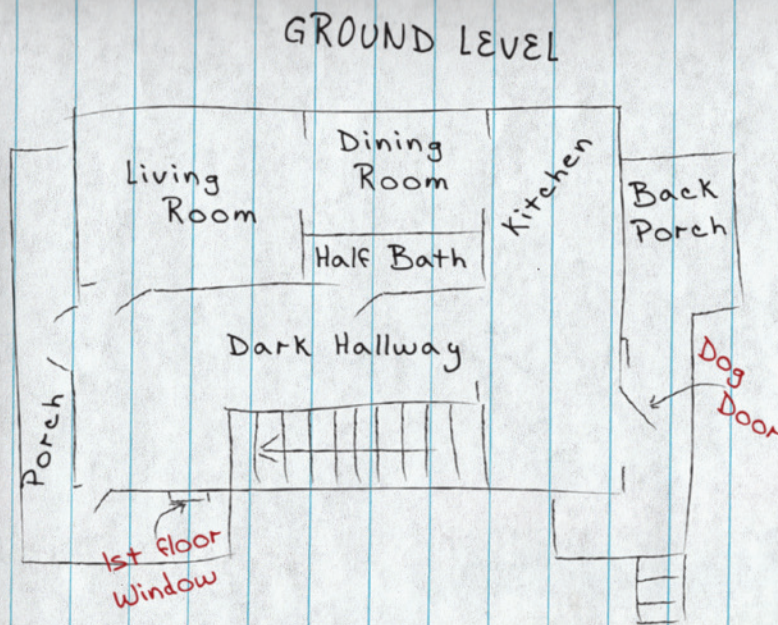 GROUND LEVEL
Dining
Room
Living
Room
Kitchen
Back
Porch
Half Bath
Dark Hallway
Dog
Door
Porch
1st floor
Window